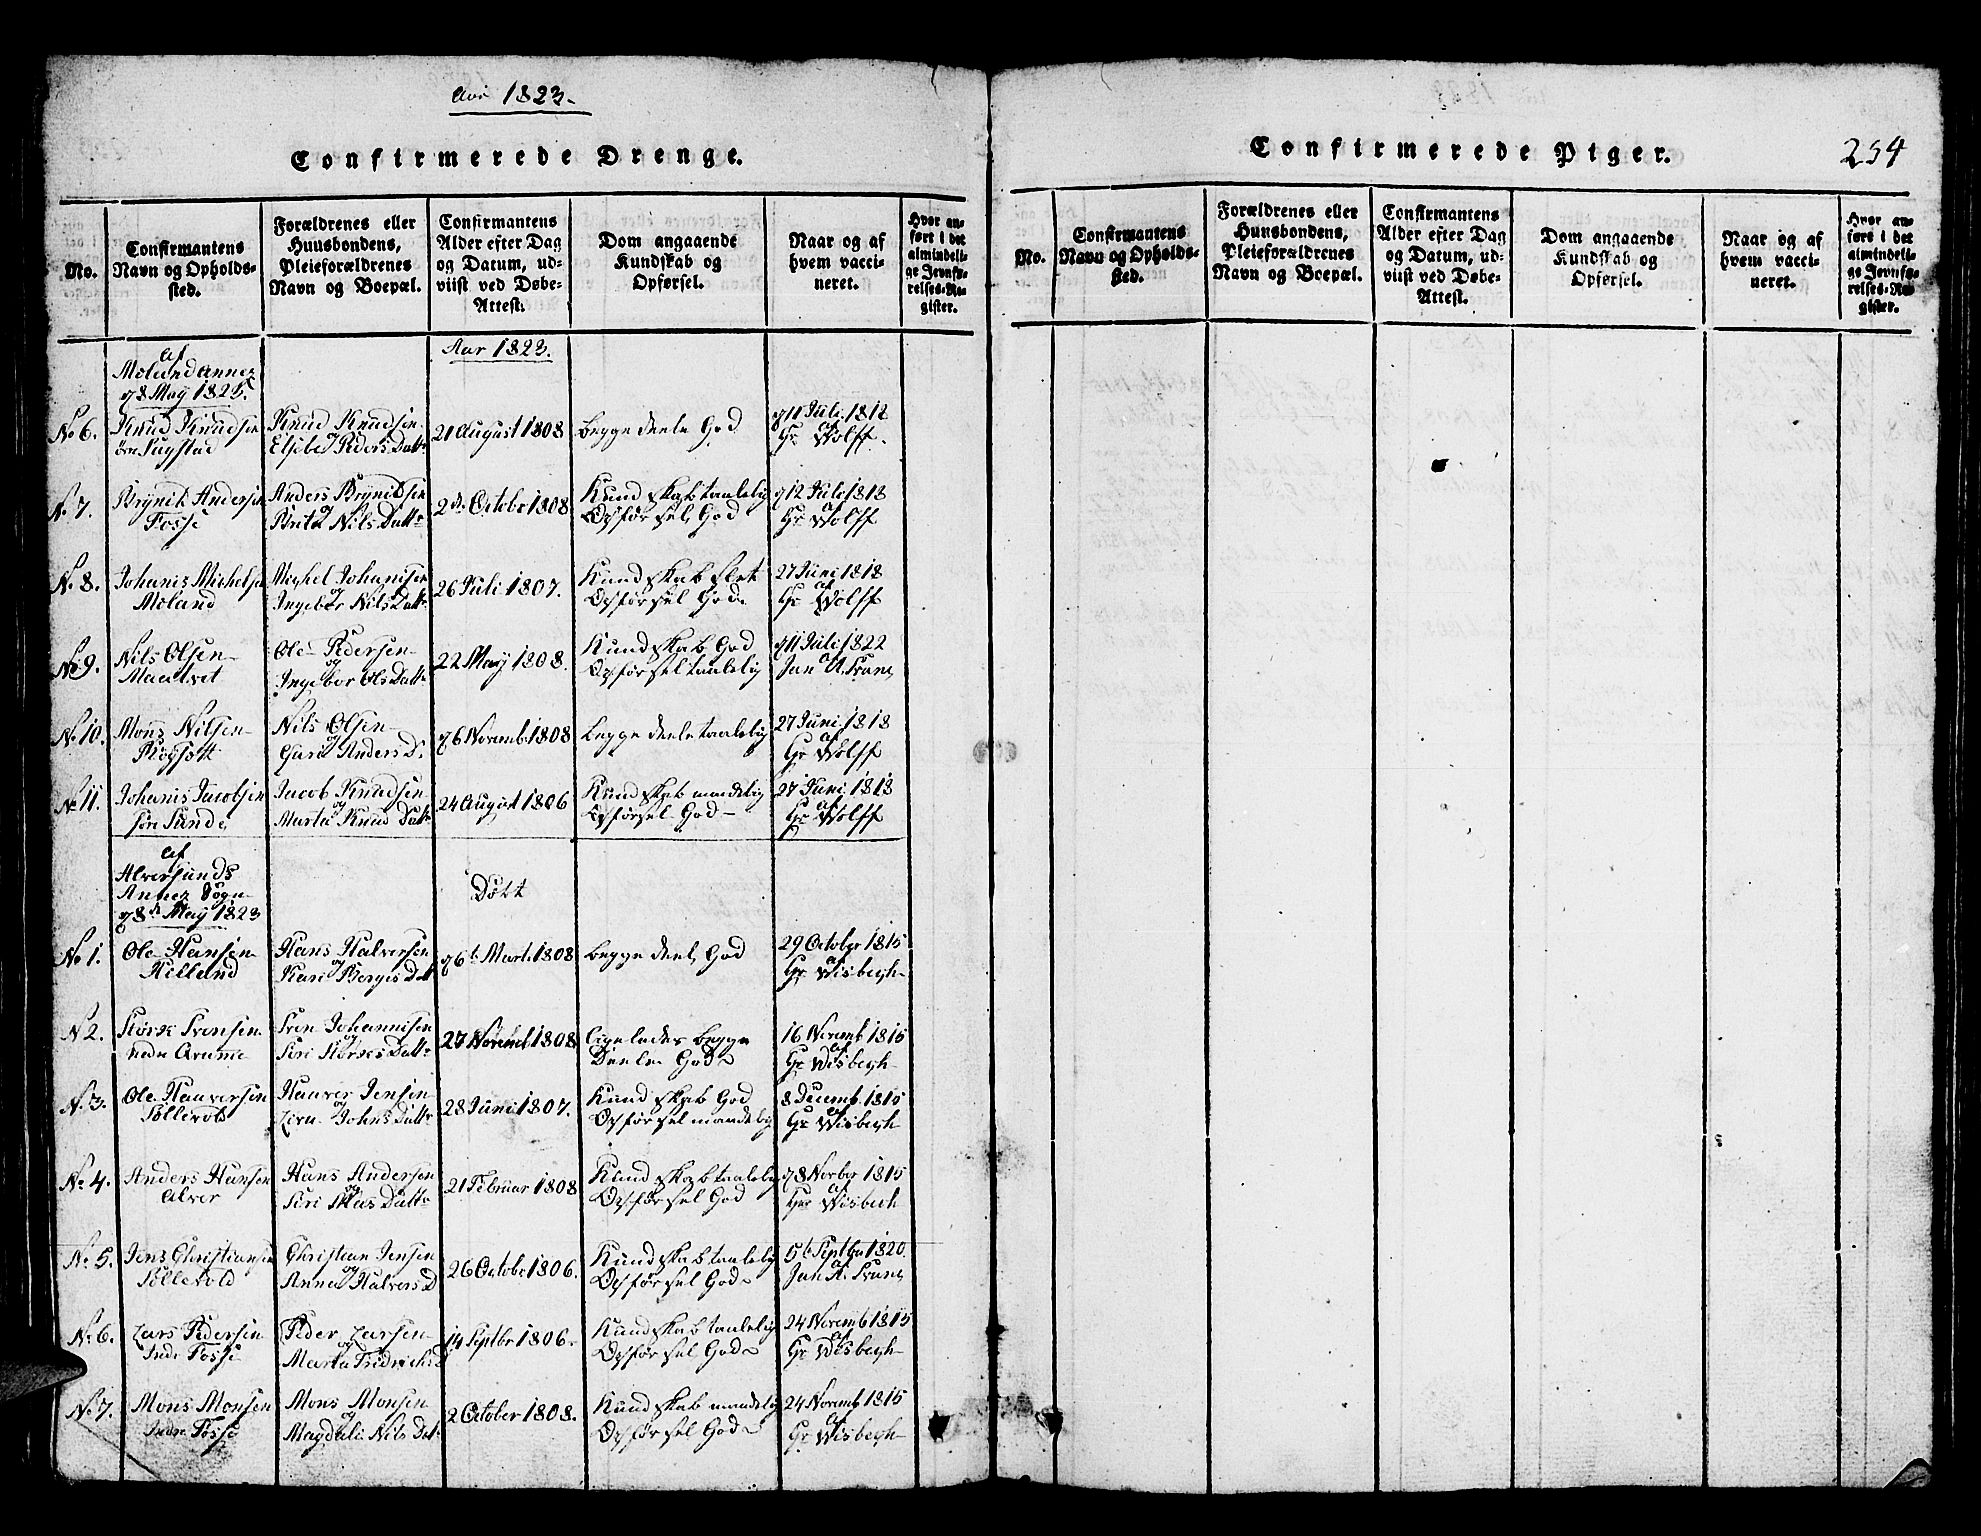 1823.
Confirmerede Drenge.
No.
Confirmantens
Navn og Opholds-
sted.
Forældrenes eller
Huusbondens,
Pleieforældrenes
Navn og Boepæl.
Confirmantens
Alder efter Dag
og Datum, ud-
viist ved Døbe-
Attest.
Dom angaaende
Kundskab og
Opførsel.
Naar og af
hvem vacci-
neret.
Hvor an-
ført i det
almindeli-
ge Jevnfø-
relses-Re-
gister.
af
Molund Annex
May 1823.
Aar 1823.
No 6.
Knud Knudsen
Knud Knudsen
og
Elsebe Peders Dattr
21 August 1808
begge deele God
11 Juli 1818
af
Hr Wolff.
No 7.
Brynild Andersen
Fosse
Anders Brynildsen
og
Brita Nils Dattr
2de Octobr 1808
Kundskab taalelig
Opførsel God
12 Juli 1818
af
Hr Wolff
No 8.
Johanis Michelsen
Moland
Mighel Johanisen
og
Ingebor Nils Dattr
26 Juli 1807.
Kundskab slet
Opførsel God
27 Juni 1818
af
Hr Wolff
No 9.
Nils Olsen
Ole Pedersen
og
Ingebor Ols Dattr
22 May 1808.
Kundskab God
Opførsel taalelig
11 Juli 1822
af
No 10.
Mons Nilsen
Nils Olsen
og
Guri Anders D.
6 Novemb. 1808
begge deele taalelig
27 Juni 1818
af
Hr Wolff
No 11.
Johanis Jacobsen
Sunde
Jacob Knudsen
og
Marta Knud Dattr
24 August 1806
Kundskab maadelig
Opførsel God
27 Juni 1818
af
Hr Wolff
af
Alversunds
Annex Sogn
8de May 1823
No 1.
Ole Hansen
Hilland
Hans Halversen
og
Kari Borges Datt
6te Marti 1808
begge deele God
29 October 1815
af
Hr Wisbegh
No 2.
Størk Svensen
Sven Johannisen
og
Siri Størks Dattr
27 Novembr 1808
ligeledes begge
Deele God
16 Novemb 1815
af
Hr Wisbegh
No 3.
Ole Haaversen
Sollevold
Haaver Jensen
og
Johns Dattr
28 Juni 1807.
Kundskab God
Opførsel maadelig
8 Decemb. 1815
af
Hr Wisbegh
No 4.
Anders Hansen
Alver
Hans Andersen
og
Siri Dattr
21 Februar 1808
Kundskab taalelig
Opførsel God
1815
af
Hr Wisbegh
No 5.
Jens Christiansen
Sollevold
Christian Jensen
og
Anna Halvers D
26 Octobr 1806.
Kundskab taalelig
Opførsel God
5te Septbr 1820.
af
No 6.
Lars Pedersen
Indre Fosse
Peder Larsen
og
Marta Fredrichs D
14 Septbr 1806.
Kundskab taalelig
Opførsel God
24 Novemb 1815
af
Hr Wisbegh
No 7.
Mons Monsen
Indre Fosse
Mons Monsen
og
Magdeli Nils Dat
2 October 1808.
Kundskab maadelig
Opførsel God
24 Novemb 1815
af
Hr Wisbegh
Confirmerede Piger.
254
No.
Confirmantens
Navn og Opholds-
sted.
Forældrenes eller
Huusbondens,
Pleieforældrenes
Navn og Boepæl.
Confirmantens
Alder efter Dag
og Datum, ud-
viist ved Døbe-
Attest.
Dom angaaende
Kundskab og
Opførsel.
Naar og af
hvem vacci-
neret.
Hvor an-
ført i det
almindeli-
ge Jevnfø-
relses-Re-
gister.